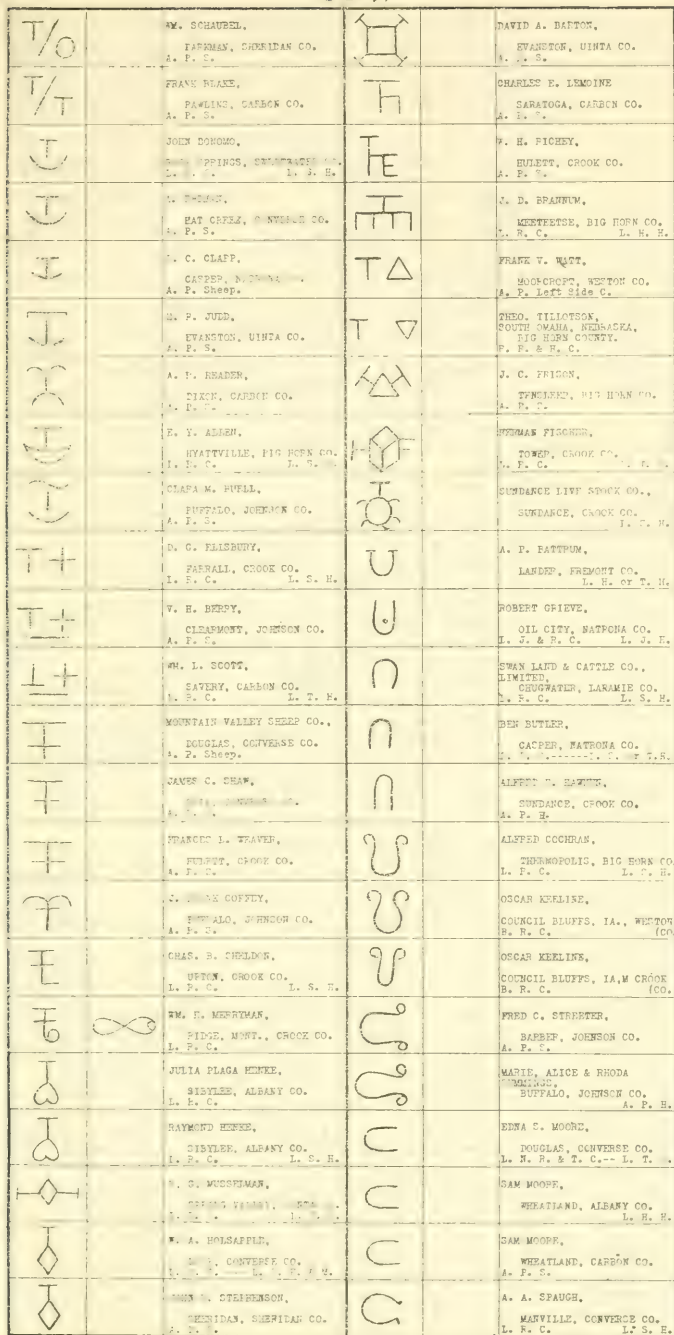 WM. SCHAUBEL,
PARKMAN, SHERIDAN CO.
A. P. S.
FRANK BLAKE,
RAWLINS, CARBON CO.
A. P. S.
JOHN DONOMO,
SPRINGS,
L. S. H.
HAT CREEK, CONVERSE CO.
A. P. S.
C. CLAPP,
CASPER,
A. P. Sheep.
P. JUDD,
EVANSTON, UINTA CO.
A. P. S.
A. READER,
DIXON, CARBON CO.
A. P. S.
E. Y. ALLEN,
HYATTVILLE, BIG HORN CO.
L. R. C. L. S.
CLARA M. BUELL,
BUFFALO, JOHNSON CO.
A. P. S.
D. C. ELLSBURY,
FARRALL, CROOK CO.
L. R. C. L. S. H.
V. H. BERRY,
CLEARMONT, JOHNSON CO.
A. P. S.
WM. L. SCOTT,
SAVERY, CARBON CO.
L. R. C. L. T. H.
MOUNTAIN VALLEY SHEEP CO.,
DOUGLAS, CONVERSE CO.
A. P. Sheep.
JAMES C. SHAW,
FRANCES L. WEAVER,
HULETT, CROOK CO.
A. P. S.
J. COFFEY,
BUFFALO, JOHNSON CO.
A. P. S.
CHAS. B. SHELDON,
UPTON, CROOK CO.
L. R. C. L. S. H.
WM. E. MERRYMAN,
RIDGE, MONT., CROOK CO.
L. R. C.
JULIA PLAGA HENKE,
SIBYLEE, ALBANY CO.
L. R. C.
RAYMOND HENKE,
SIBYLEE, ALBANY CO.
L. R. C. L. S. H.
S. MUSSELMAN,
VALLEY,
W. A. HOLSAPPLE,
CONVERSE CO.
STEPHENSON,
SHERIDAN, SHERIDAN CO.
DAVID A. BARTON,
EVANSTON, UINTA CO.
CHARLES E. LEMOINE
SARATOGA, CARBON CO.
A. P. S.
H. RICHEY,
HULETT, CROOK CO.
A. P. S.
J. D. BRANNUM,
MEETEETSE, BIG HORN CO.
L. R. C. L. H. H.
FRANK V. WATT,
MOORCROFT, WESTON CO.
A. P. Left Side C.
THEO. TILLOTSON,
SOUTH OMAHA, NEBRASKA,
BIG HORN COUNTY.
P. P. & H. C.
J. C. FRISON,
TENSLEEP, BIG HORN CO.
A. P. S.
HERMAN FISCHER,
TOWER, CROOK CO.
L. R. C.
SUNDANCE LIVE STOCK CO.,
SUNDANCE, CROOK CO.
A. P. BATTRUM,
LANDER, FREMONT CO.
L. H. or T. H.
ROBERT GRIEVE,
OIL CITY, NATRONA CO.
L. J. & R. C. L. J. H.
SWAN LAND & CATTLE CO.,
LIMITED,
CHUGWATER, LARAMIE CO.
L. R. C. L. S. H.
BEN BUTLER,
CASPER, NATRONA CO.
ALFRED
SUNDANCE, CROOK CO.
A. P. H.
ALFRED COCHRAN,
THERMOPOLIS, BIG HORN CO
L. R. C. L. S. H.
OSCAR KEELINE,
COUNCIL BLUFFS, IA., WESTON
R. R. C. (CO.
OSCAR KEELINE,
COUNCIL BLUFFS, IA,M CROOK
R. R. C. (CO.
FRED C. STREETER,
BARBER, JOHNSON CO.
A. P. S.
MARIE, ALICE & RHODA
CUMMINGS,
BUFFALO, JOHNSON CO.
A. P. H.
EDNA S. MOORE,
DOUGLAS, CONVERSE CO.
L. N. R. & T. C.-- L. T.
SAM MOORE,
WHEATLAND, ALBANY CO.
L. H. H.
SAM MOORE,
WHEATLAND, CARBON CO.
A. P. S.
A. A. SPAUGH,
MANVILLE, CONVERSE CO.
L. R. C. L. S. H.